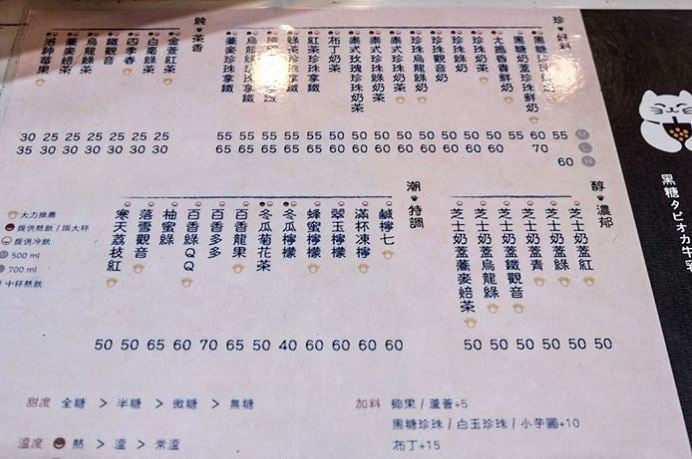 珍 好料
黑糖珍珠
黑糖奶蓋珍珠鮮奶
大搗香香鮮奶
珍珠奶茶
珍珠綠奶
珍珠觀音奶
珍珠烏龍奶
泰式珍珠奶茶
泰式珍珠綠奶茶
泰式玫瑰珍珠奶茶
布丁奶茶
紅茶珍珠拿鐵
綠茶珍珠拿鐵
烏龍珍珠拿鐵
蕎麥珍珠拿鐵
純 茶香
金萱紅茶
白毫綠茶
四季春
鐵觀音
烏龍綠茶
蕎麥焙茶
洛神莓果
30 25 25 25 25 25 25
35 30 30 30 30 30 30
55 55 55 55 55 50 50 50 50 50 50 50 50 55 60 55
65 65 65 65 65 60 60 60 60 60 60 60 60 70
60
M
L
H
醇 濃郁
芝士奶蓋紅
芝士奶蓋綠
芝士奶蓋青
芝士奶蓋鐵觀音
芝士奶蓋烏龍綠
芝士奶蓋蕎麥焙茶
潮 特調
鹹檸七
滿杯凍檸
翠玉檸檬
蜂蜜檸檬
冬瓜檸檬
冬瓜菊花茶
百香龍果
百香多多
百香綠QQ
柚蜜綠
落雪觀音
寒天荔枝紅
50 50 65 60 70 65 50 40 60 60 60 60
50 50 50 50 50 50
大力推薦
提供熱飲/限大杯
提供冷飲
500 ml
700 ml
中杯熱飲
甜度 全糖 > 半糖 > 微糖 > 無糖
溫度 熱 > 溫 > 常溫
加料 椰果/蘆薈+5
黑糖珍珠/白玉珍珠/小芋圓+10
布丁+15
黑糖タピオカ牛乳